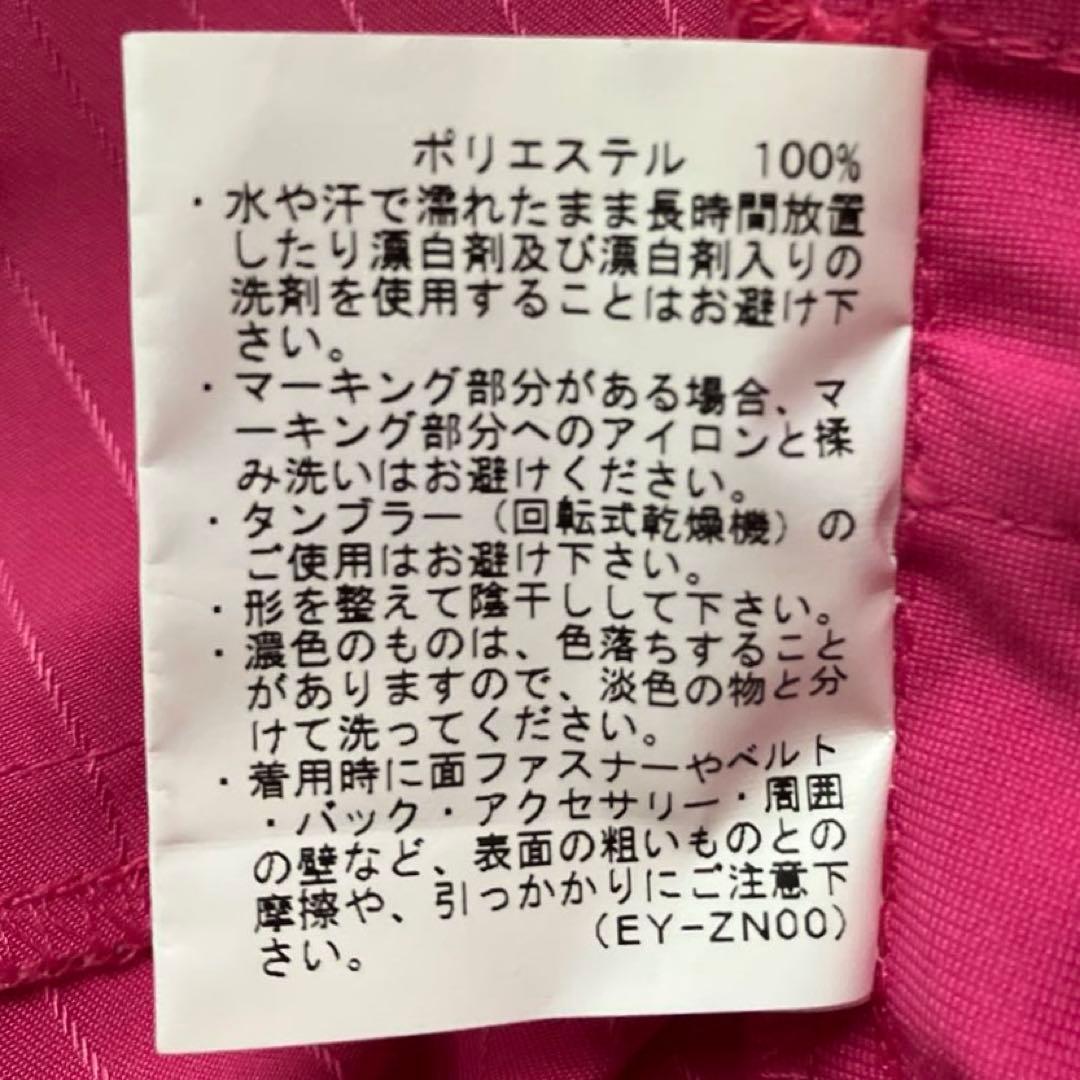 ポリエステル 100%
・水や汗で濡れたまま長時間放置
したり漂白剤及び漂白剤入りの
洗剤を使用することはお避け下
さい。
・マーキング部分がある場合、マ
ーキング部分へのアイロンと揉
み洗いはお避けください。
・タンブラー（回転式乾燥機）の
ご使用はお避け下さい。
・形を整えて陰干しして下さい。
・濃色のものは、色落ちすること
がありますので、淡色の物と分
けて洗ってください。
・着用時に面ファスナーやベルト
・バック・アクセサリー・周囲
の壁など、表面の粗いものとの
摩擦や、引っかかりにご注意下
さい。
(EY-ZN00)